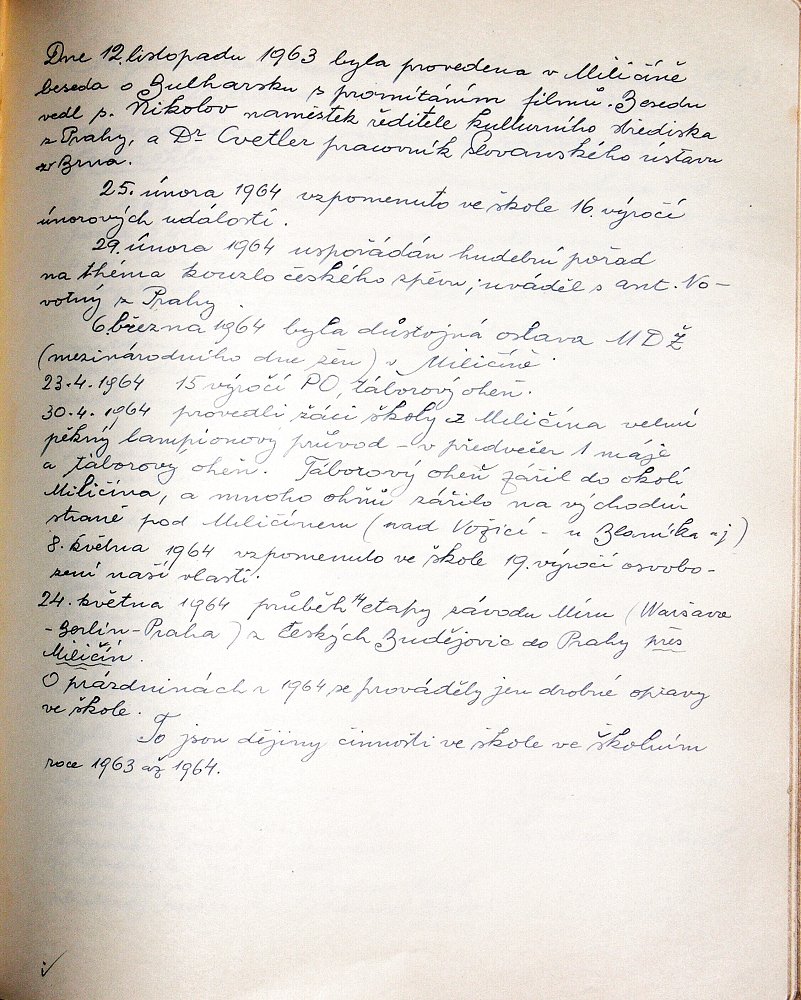 Dne 12. listopadu 1963 byla provedena v Miličíně
beseda o Bulharsku s promítáním filmů. Besedu
vedl p. Nikolov náměstek ředitele kulturního střediska
z Prahy, a Dr Cvetler pracovník Slovanského ústavu
z Brna.
25. února 1964 vzpomenuto ve škole 16. výročí
únorových událostí.
29. února 1964 uspořádán hudební pořad
na théma kouzlo českého zpěvu, uváděl s. ant. No-
votný z Prahy.
6. března 1964 byla důstojná oslava MDŽ
(mezinárodního dne žen) v Miličíně.
23.4.1964 15 výročí PO, táborový oheň.
30.4.1964 provedli žáci školy z Miličína velmi
pěkný lampionový průvod - v předvečer 1 máje
a táborový oheň. Táborový oheň zářil do okolí
Miličína, a mnoho ohňů zářilo na východní
straně pod Miličínem (nad Vožicí - u Blaníka aj)
8. května 1964 vzpomenuto ve škole 19. výročí osvobo-
zení naší vlasti.
24. května 1964 průběh 14 etapy závodu Míru (Waršava
- Berlín - Praha) z Českých Budějovic do Prahy přes
Miličín.
O prázdninách r 1964 se prováděly jen drobné opravy
ve škole.
To jsou dějiny činnosti ve škole ve školním
roce 1963 až 1964.